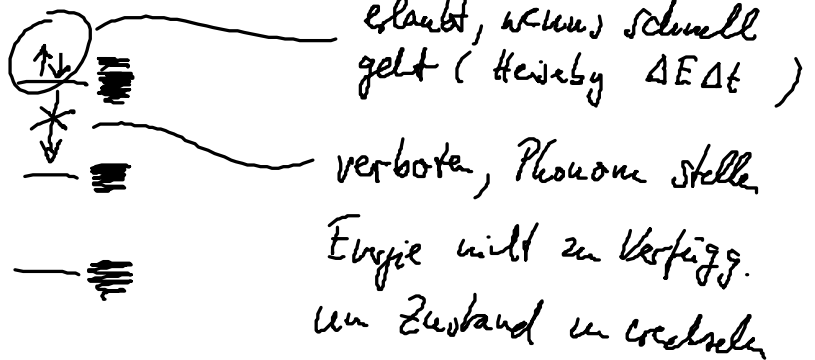 erlaubt, wenns schnell
geht (Heisebg ΔEΔt)
verboten, Phonon stellen
Energie nicht zu Verfügg.
um Zustand zu wechseln